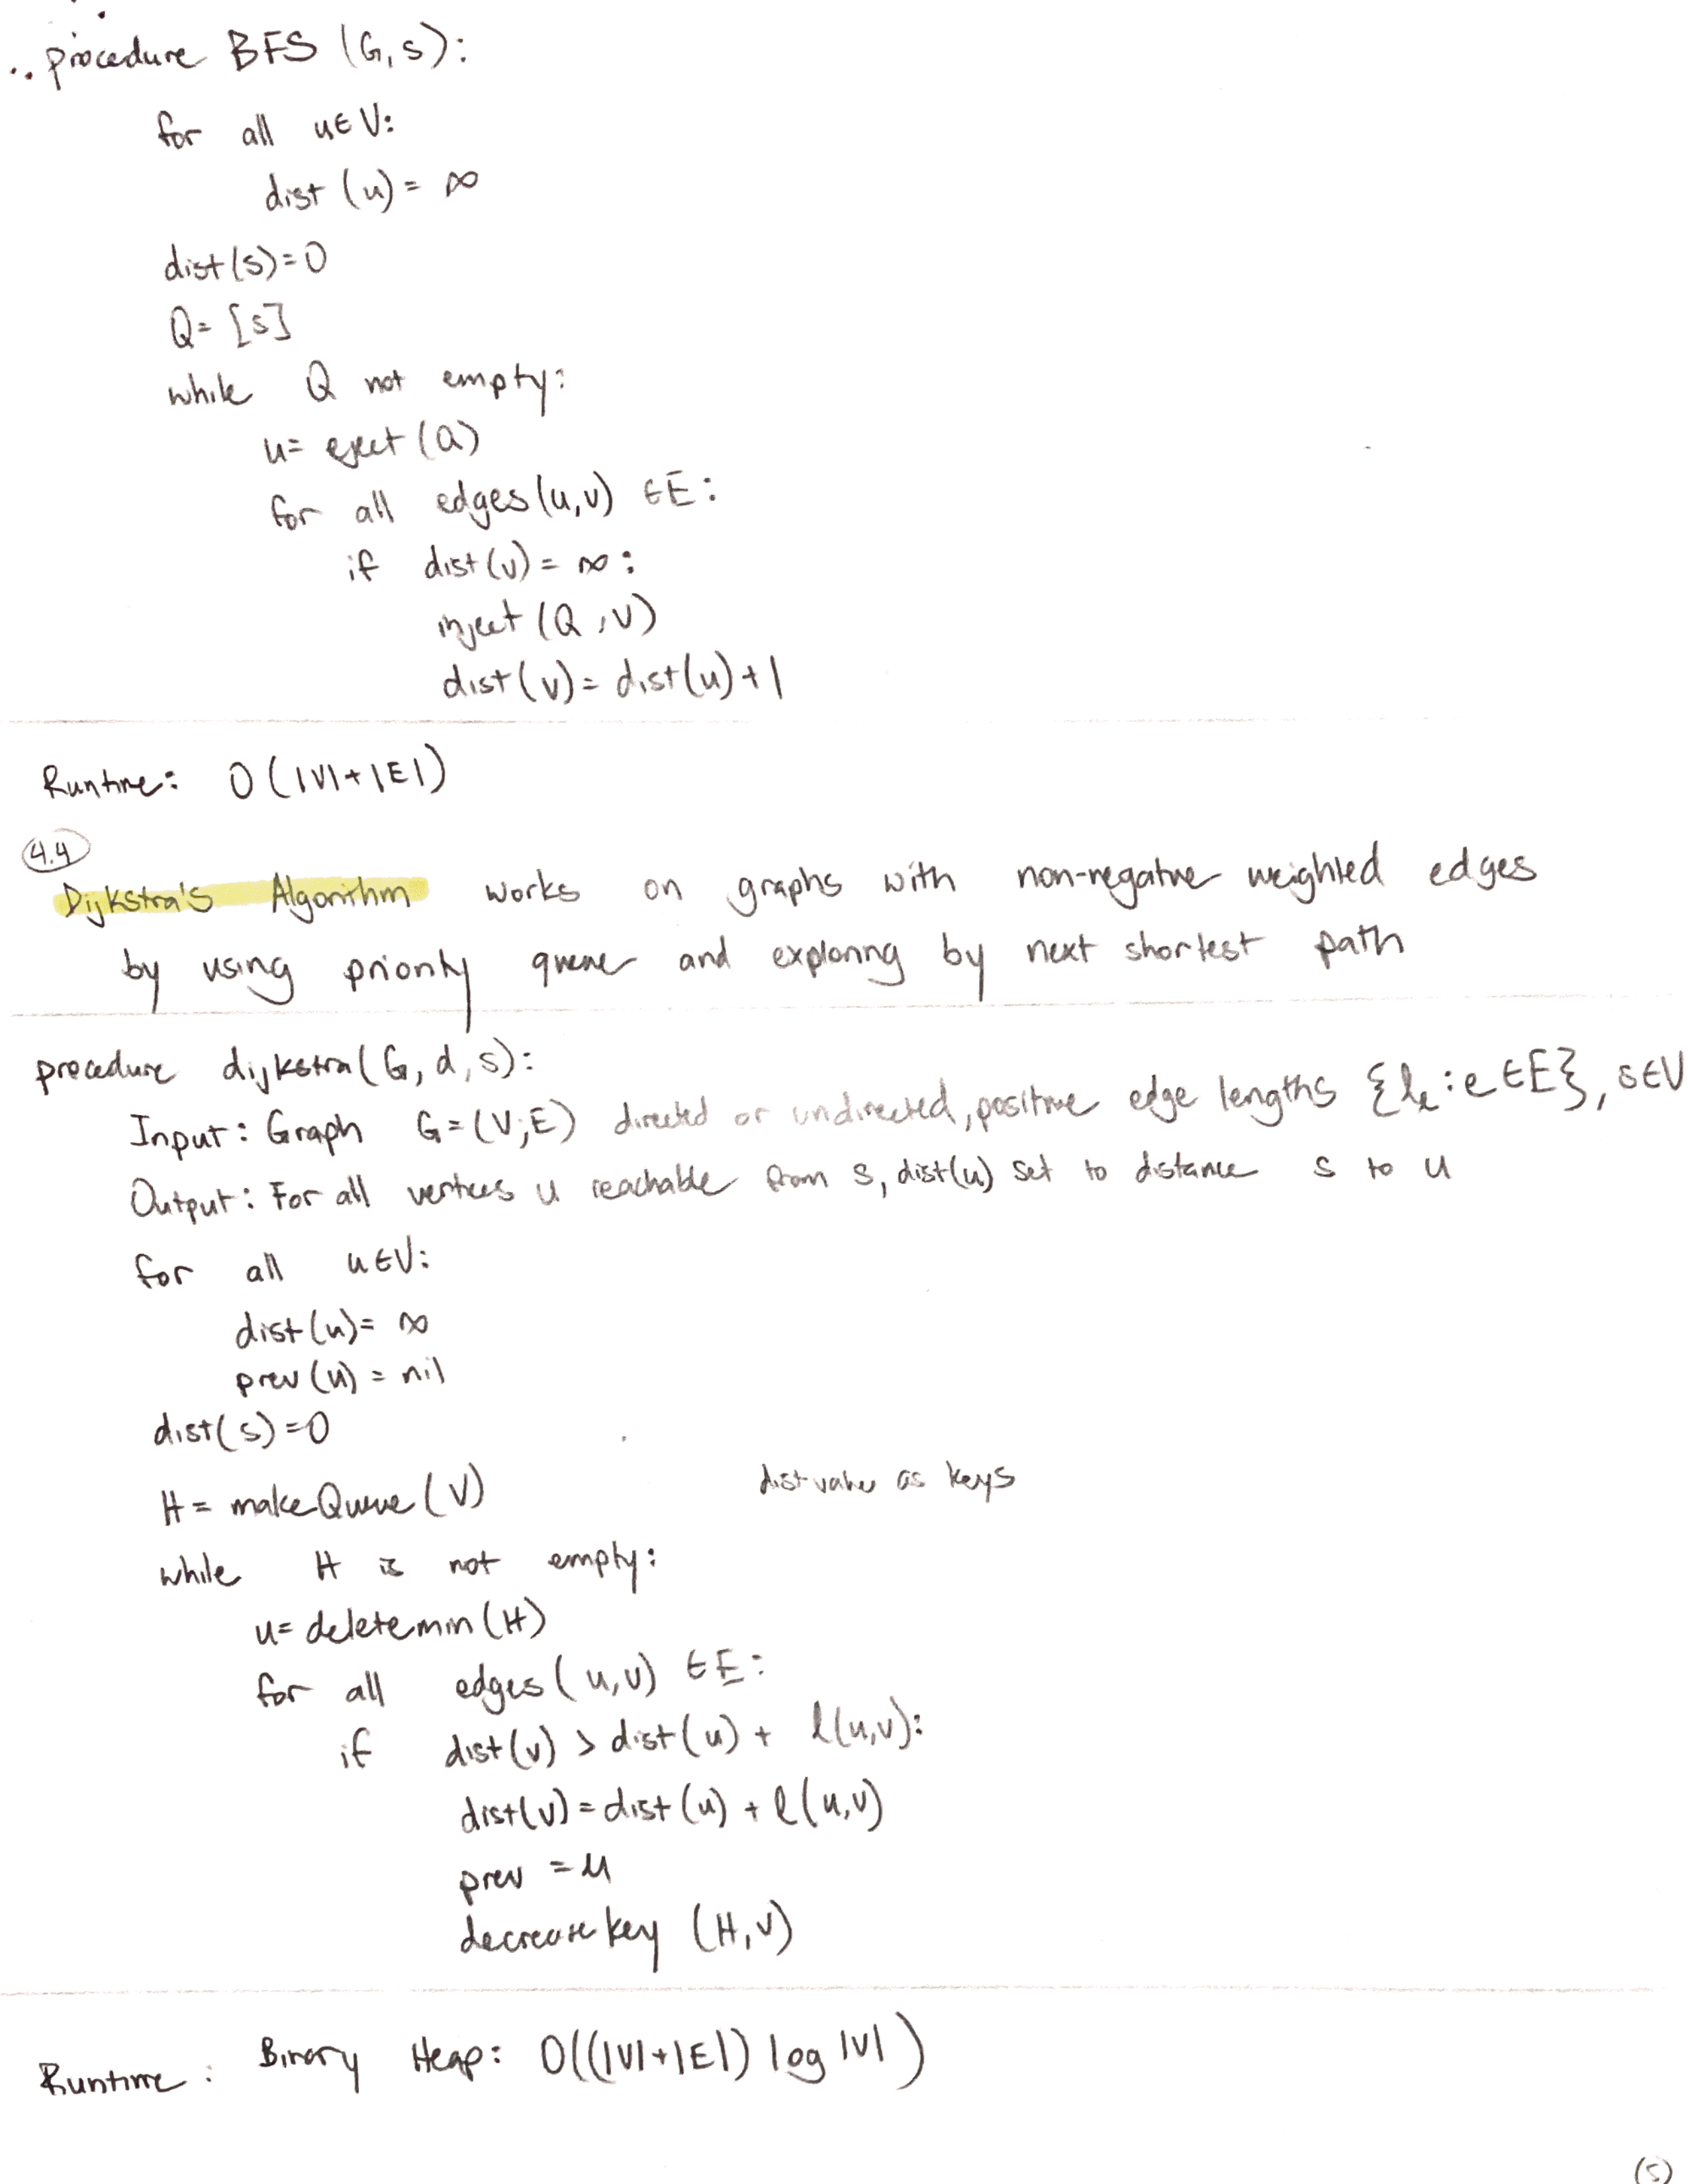 procedure BFS (G,s):
for all u∈V:
dist (u) = ∞
dist(s)=0
Q= [s]
while Q not empty:
u= eject (Q)
for all edges(u,v) ∈E:
if dist(v) = ∞:
inject (Q,v)
dist(v) = dist(u)+1
Runtime: O(|V|+|E|)
4.4
Dijkstra's Algorithm works on graphs with non-negative weighted edges
by using priority queue and exploring by next shortest path
procedure dijkstra(G, d, s):
Input: Graph G=(V,E) directed or undirected, positive edge lengths {le : e∈E}, s∈V
Output: For all vertices u reachable from s, dist(u) set to distance s to u
for all u∈V:
dist(u)= ∞
prev(u) = nil
dist(s)=0
H = makeQueue(V) dist values as keys
while H is not empty:
u= deletemin(H)
for all edges(u,v) ∈E:
if dist(v) > dist(u) + l(u,v):
dist(v)=dist(u) + l(u,v)
prev = u
decreasekey (H,v)
Runtime: Binary Heap: O((|V|+|E|) log |V|)
(5)